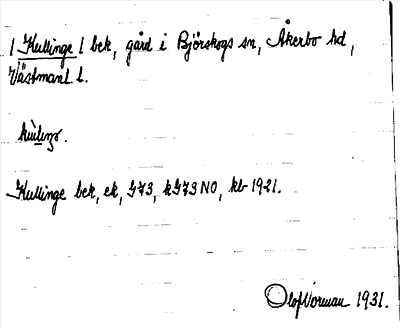 / Kullinge / bek, gård i Björskogs sn, Åkerbo hd,
Västmanl. l.
Kullinge bek, ek, G43, kG43 NO, kb 1921.
Olof Norman 1931.